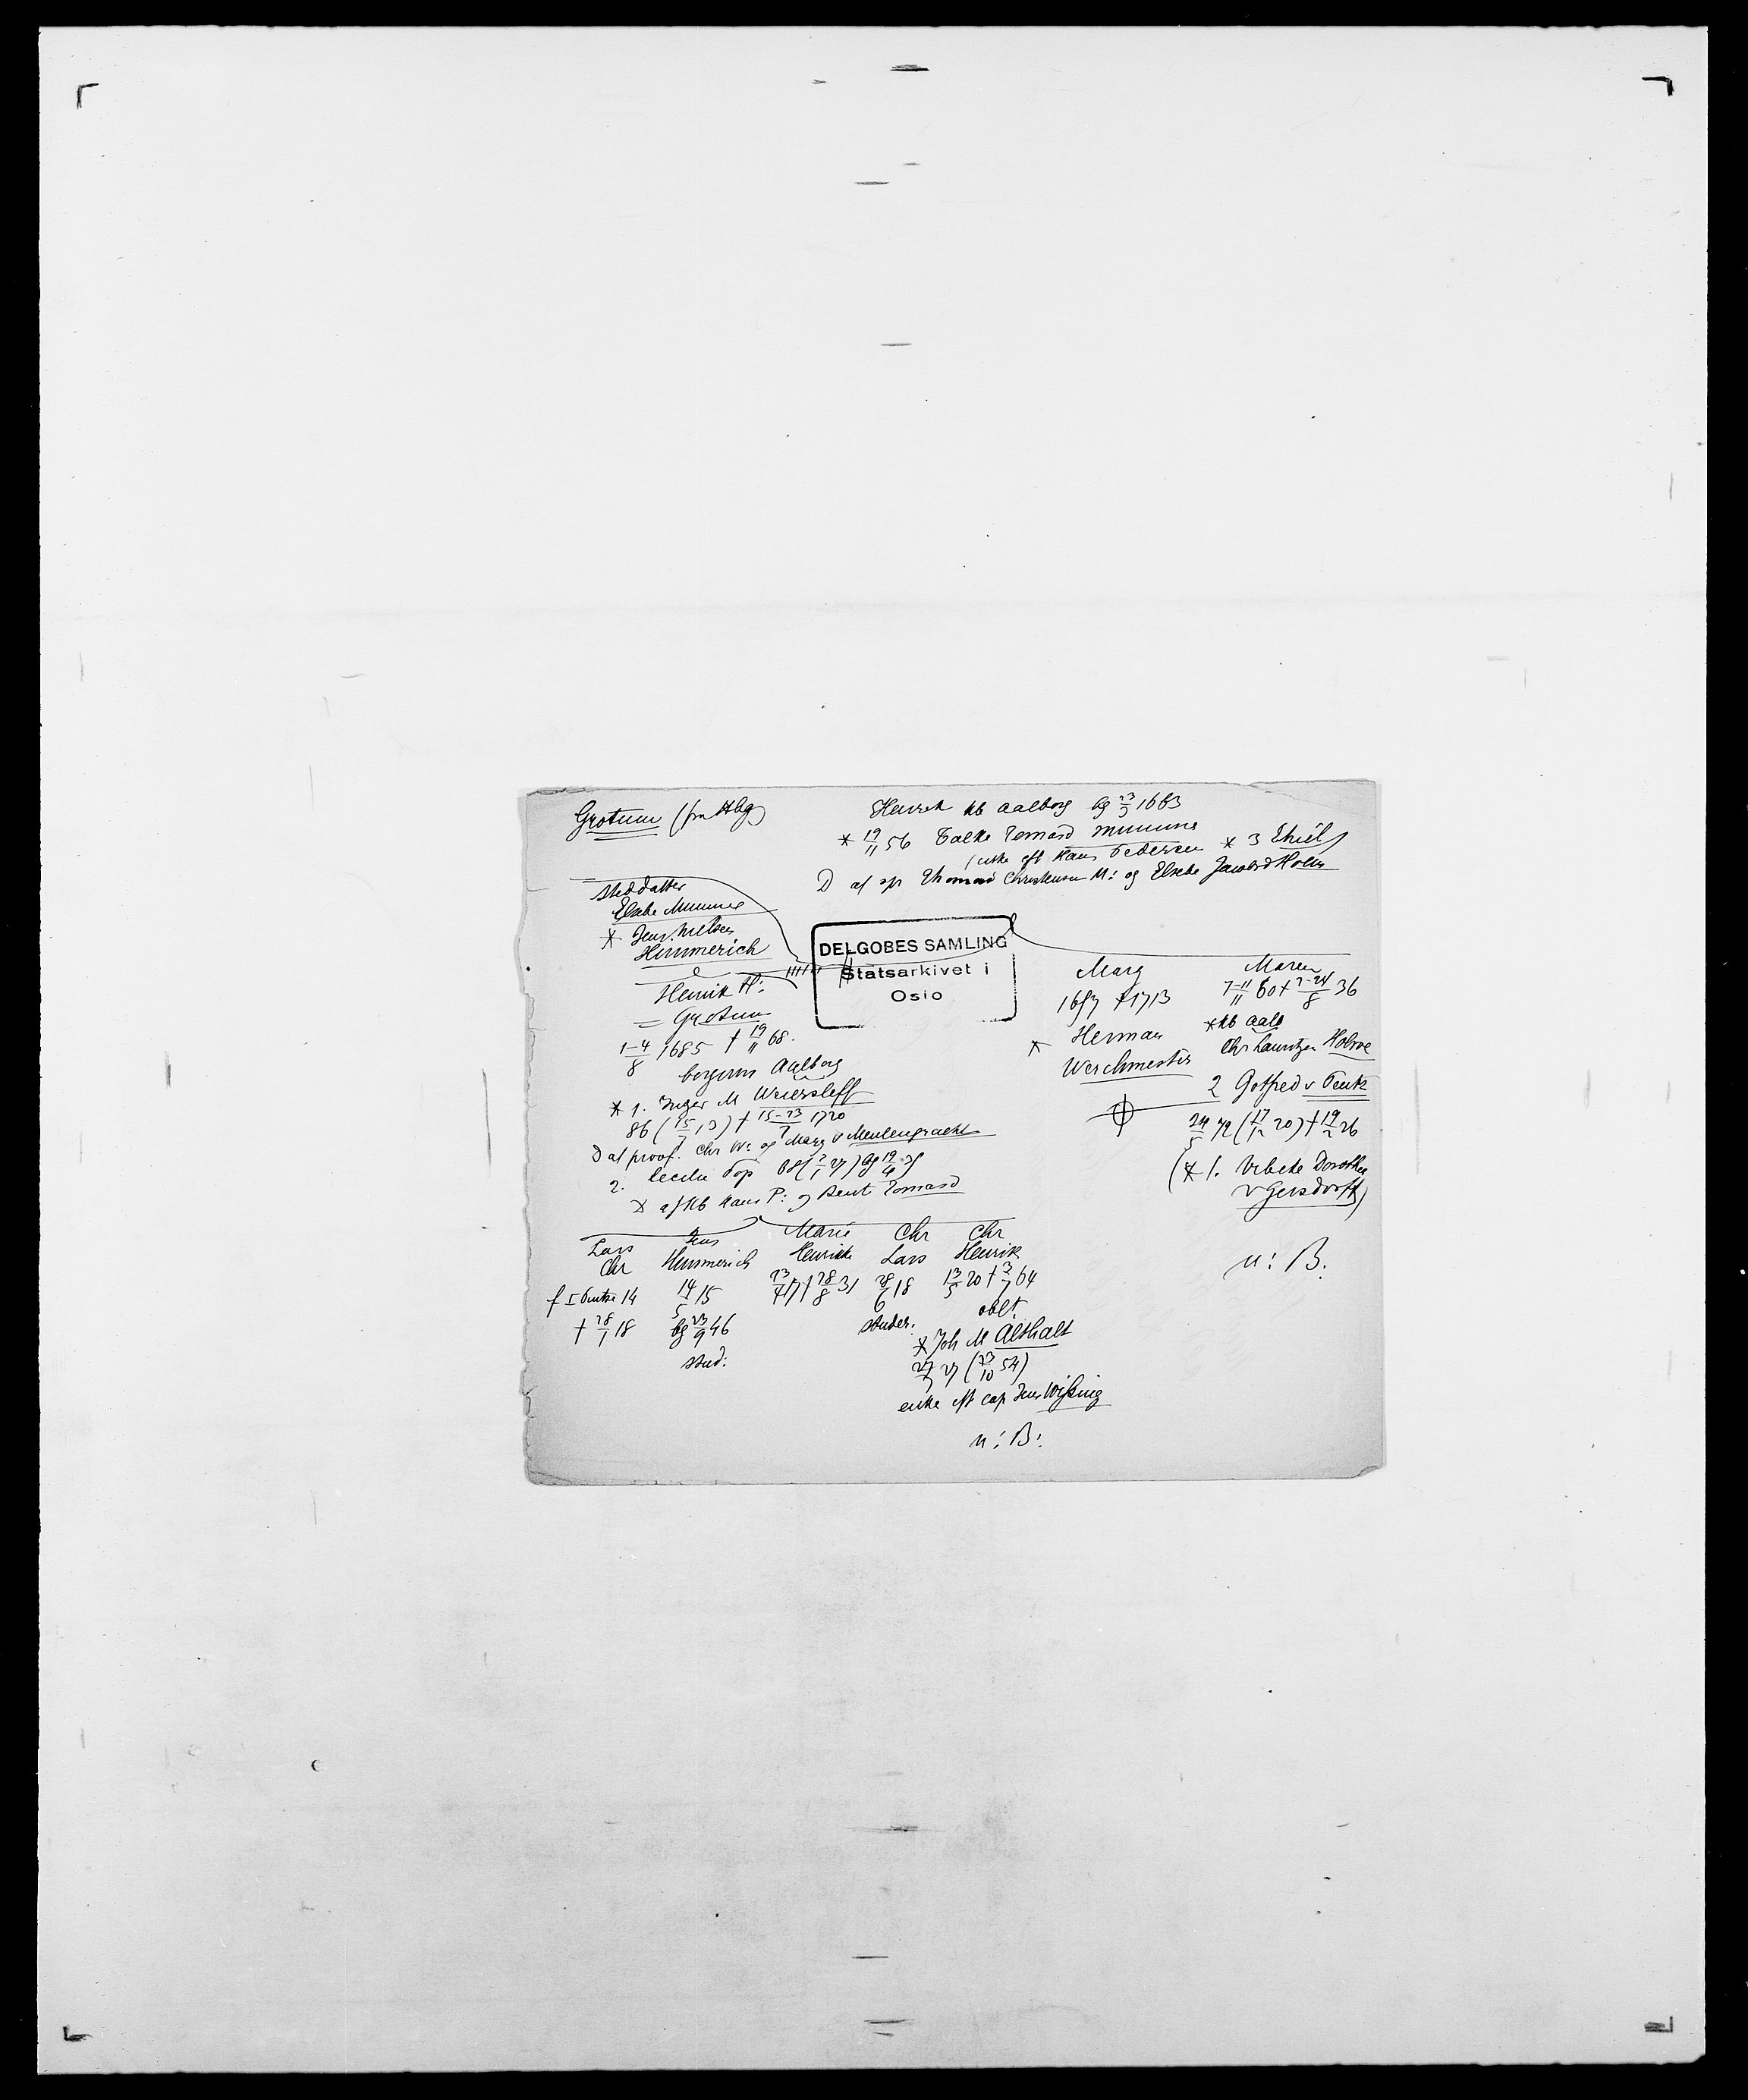 Grotum (fra Hbg)
Henrik kb Aalborg bg 23/3 1663
* 19/11 56 Talke Tomasd Mumme
(enke eft Hans Pedersen * 3 Thiel)
D af sp Thomas Christensen M: og Elsebe Jacobsd Holm
steddatter
Elsebe Mumme
* Jens Nielsen
Himmerich
Henrik H:
= Grotum
1-4/8 1685 † 19/11 68.
borgerm Aalborg
* 1. Inger M Weiersleff
86 (15/7 13) † 15-23/7 1720
D af proof. Chr W: og Marg v Meulengracht
2. Cecilie Pop 08 (2/1 27) bg 19/4
* af kb Hans P: og Berit Tomasd
DELGOBES SAMLING
Statsarkivet i
Oslo
Marg
1657 †1713
* Herman
Werchmester
Maren
7-11/11 60 † 7-24/8 36
* kb Aalb
Chr Lauritzen Holme
2 Gotfred v Pentz
24/5 72 (17/12 20) † 19/2 26
(* 1. Vibeke Dorothea
v Gersdorff)
u: B.
Lars
Chr
f I 14
† 28/1 18
Jens
Himmerich
14/5 15
bg 23/9 46
stud:
Marie
Henrikke
23/7 17 † 28/8 31
Chr
Lars
28/6 18
studer.
Chr
Henrik
13/5 20 † 3/7 64
oblt.
* Joh M Althalt
27/7 27 (23/10 54)
enke eft cap Jens Wissing
u: B: